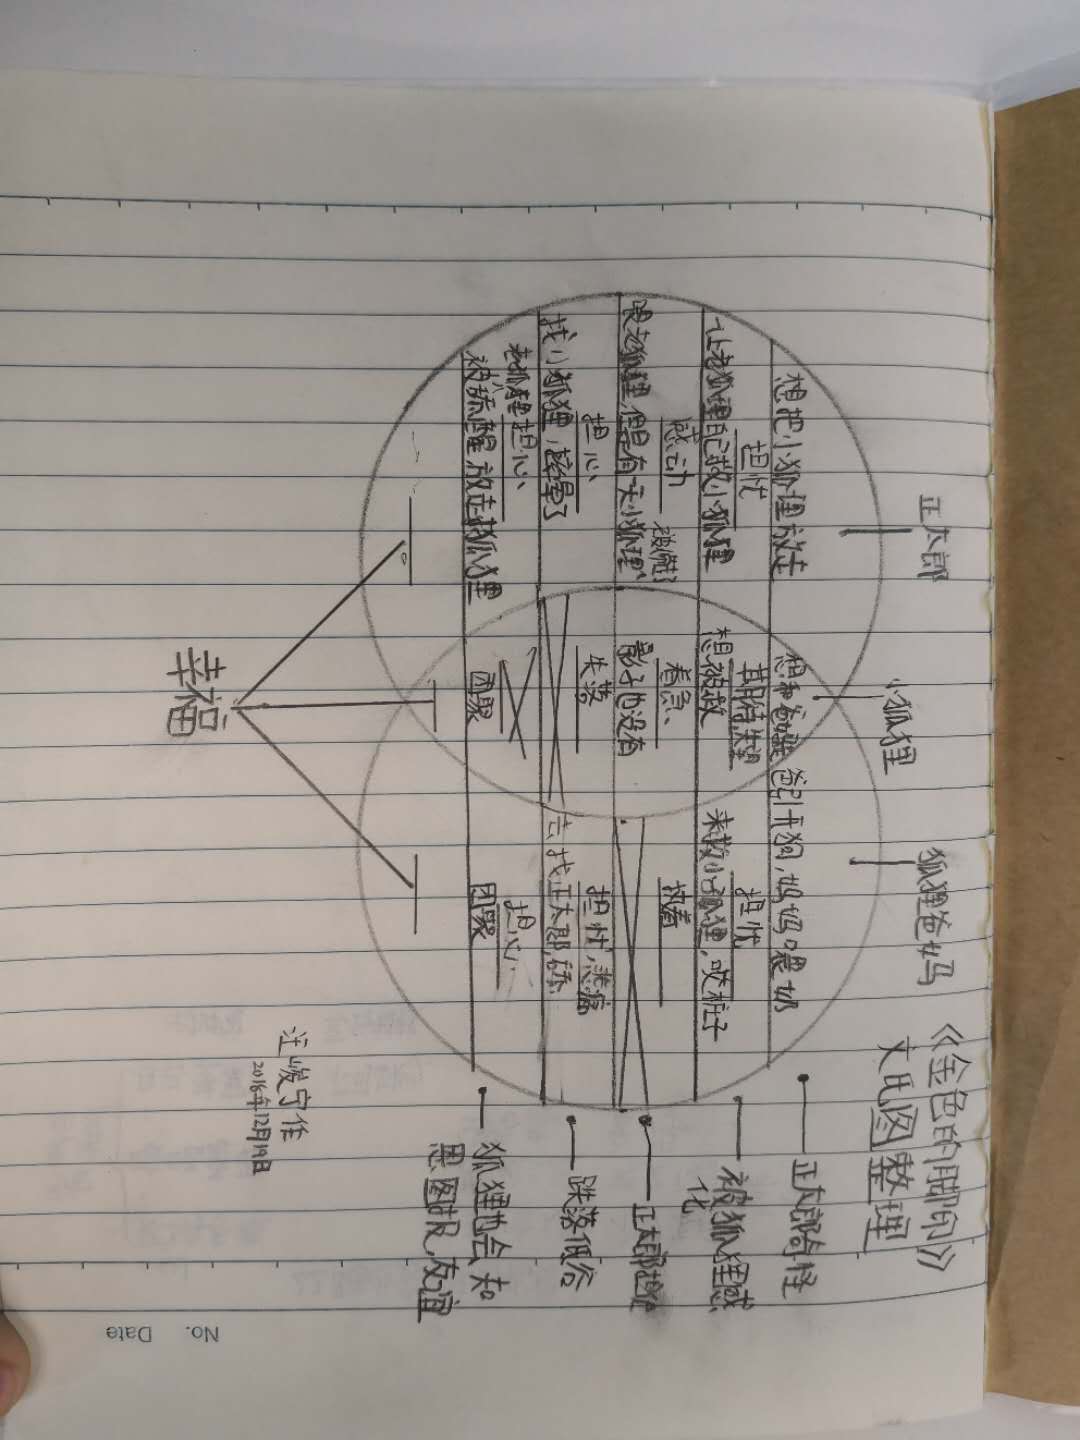 《金色的脚印》
文氏图整理
正太郎
小狐狸
狐狸爸妈
想把小狐狸放走
想和爸妈
爸引开狗,妈妈喂奶
正太郎奇怪
担忧
期待,失望
担忧
让老狐狸自己救小狐狸
想被救
来救小狐狸,咬桩子
被狐狸感化
感动
着急、
执着
喂老狐狸,但是有一天小狐狸被偷了
影子也没有
正太郎
担心
失落
担忧,悲痛
找小狐狸,摔晕了
去找正太郎,舔
跌落低谷
老狐狸担心、
担心、
被舔醒,放走狐狸
团聚
团聚
狐狸也会知恩图报,友谊
幸福
2016年12月19日
No.
Date